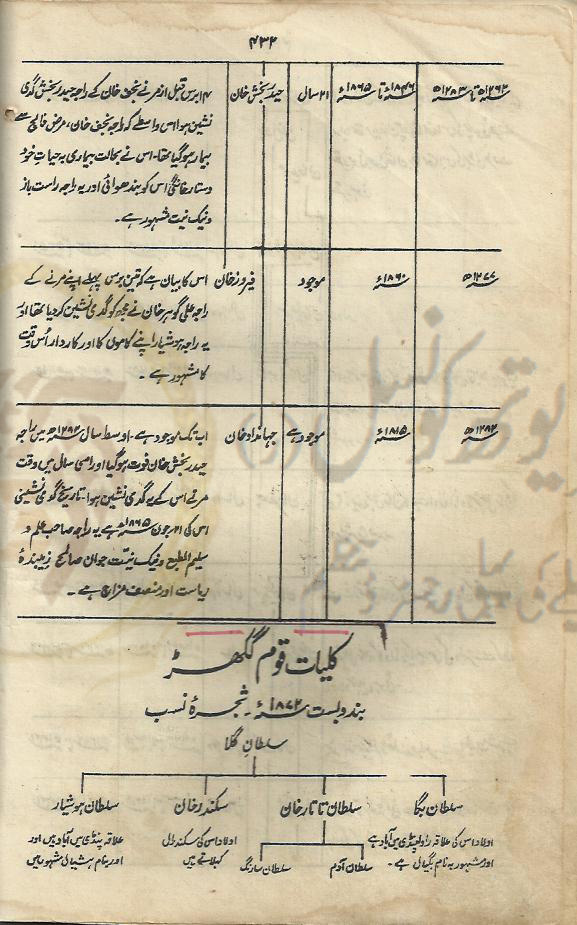 ۴۳۲
سنہ ۱۲۶۲ھ تا سنہ ۱۲۸۳ھ
سنہ ۱۸۴۶ء تا سنہ ۱۸۶۵ء
۲۱ سال
حیدر بخش خان
۴ برس قبل از مرنے نجف خان کے راجہ حیدر بخش گدی
نشین ہوا اس واسطے کہ راجہ نجف خان، مرض فالج سے
بیمار ہوگیا تھا۔ اس نے بحالت بیماری بہ حیاتِ خود
دستار خانگی اس کو بندھوائی اور یہ راجہ راست باز
و نیک نیت مشہور ہے۔
سنہ ۱۲۷۷ھ
سنہ ۱۸۶۰ء
موجود
فیروز خان
اس کا بیان ہے کہ تین برس پہلے اپنے مرنے کے
راجہ علی گوہر خان نے مجھ کو گدی نشین کر دیا تھا اور
یہ راجہ ہوشیار اپنے کاموں کا اور کاردار اُس وقت
کا مشہور ہے۔
موجود ہے
جہانداد خان
اب تک موجود ہے۔ اوسط سال سنہ ۱۲۸۲ھ میں راجہ
حیدر بخش خان فوت ہوگیا اور اسی سال میں وقت
مرنے اس کے یہ گدی نشین ہوا۔ تاریخ گدی نشینی
اس کی جون سنہ ۱۸۶۵ء ہے یہ راجہ صاحب علم و
سلیم الطبع و نیک نیت جوان صالح زیبندۂ
ریاست اور منصف مزاج ہے۔
کلیات قوم گکھڑ
بندوبست سنہ ۱۸۷۲ء۔ شجرۂ نسب
سلطان گلا
سلطان بگا
سلطان تاتار خان
سکندر خان
سلطان ہوشیار
اولاد اس کی علاقہ راولپنڈی میں آباد ہے
اور مشہور بہ نام بگیال ہے۔
سلطان آدم
سلطان سارنگ
اولاد اس کی سکندرال
کہلاتے ہیں
علاقہ پنڈی میں آباد ہیں اور
اور بنام ہشیال مشہور ہیں